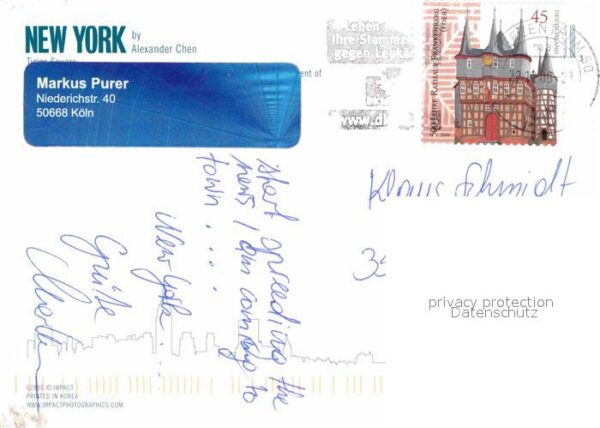 NEW YORK by
Alexander Chen
Times Square
ment of
Markus Purer
Niederichstr. 40
50668 Köln
Ihre Stammz
gegen Leuk
www.d
45
DEUTSCHLAND
500 JAHRE RATHAUS FRANKENBERG
(EDER)
Klaus Schmidt
start spreeding the
news I am coming to
town . . .
New York . . .
Grüße
Markus
privacy protection
Datenschutz
© IMPACT
PRINTED IN KOREA
WWW.IMPACTPHOTOGRAPHICS.COM